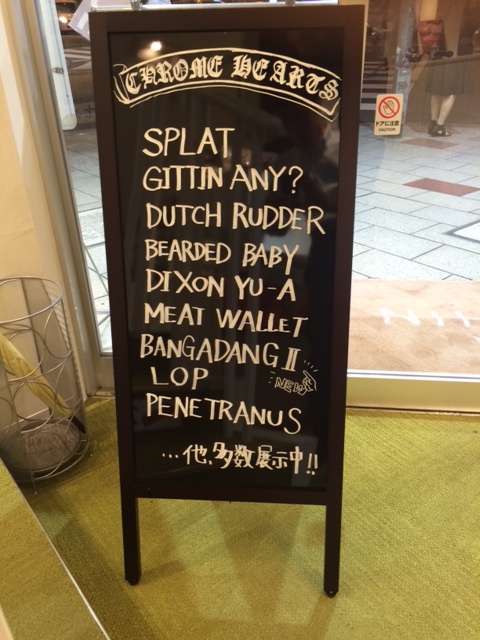 CHROME HEARTS
SPLAT
GITTIN ANY?
DUTCH RUDDER
BEARDED BABY
DIXON YU-A
MEAT WALLET
BANGADANG II
NEW
LOP
PENETRANUS
...他、多数展示中!!
ドアに注意
CAUTION